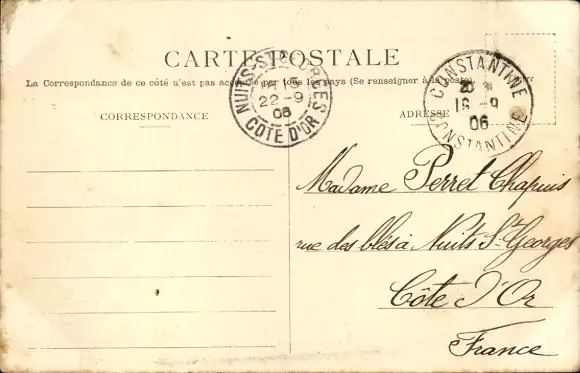 CARTE POSTALE
La Correspondance de ce côté n'est pas acceptée par tous les pays (Se renseigner à la poste)
CORRESPONDANCE
ADRESSE
NUITS-ST-GEORGES
22-9
06
COTE D'OR
CONSTANTINE
18 -9
06
CONSTANTINE
Madame Perret Chapuis
rue des blés à Nuits St Georges
Côte d'Or
France